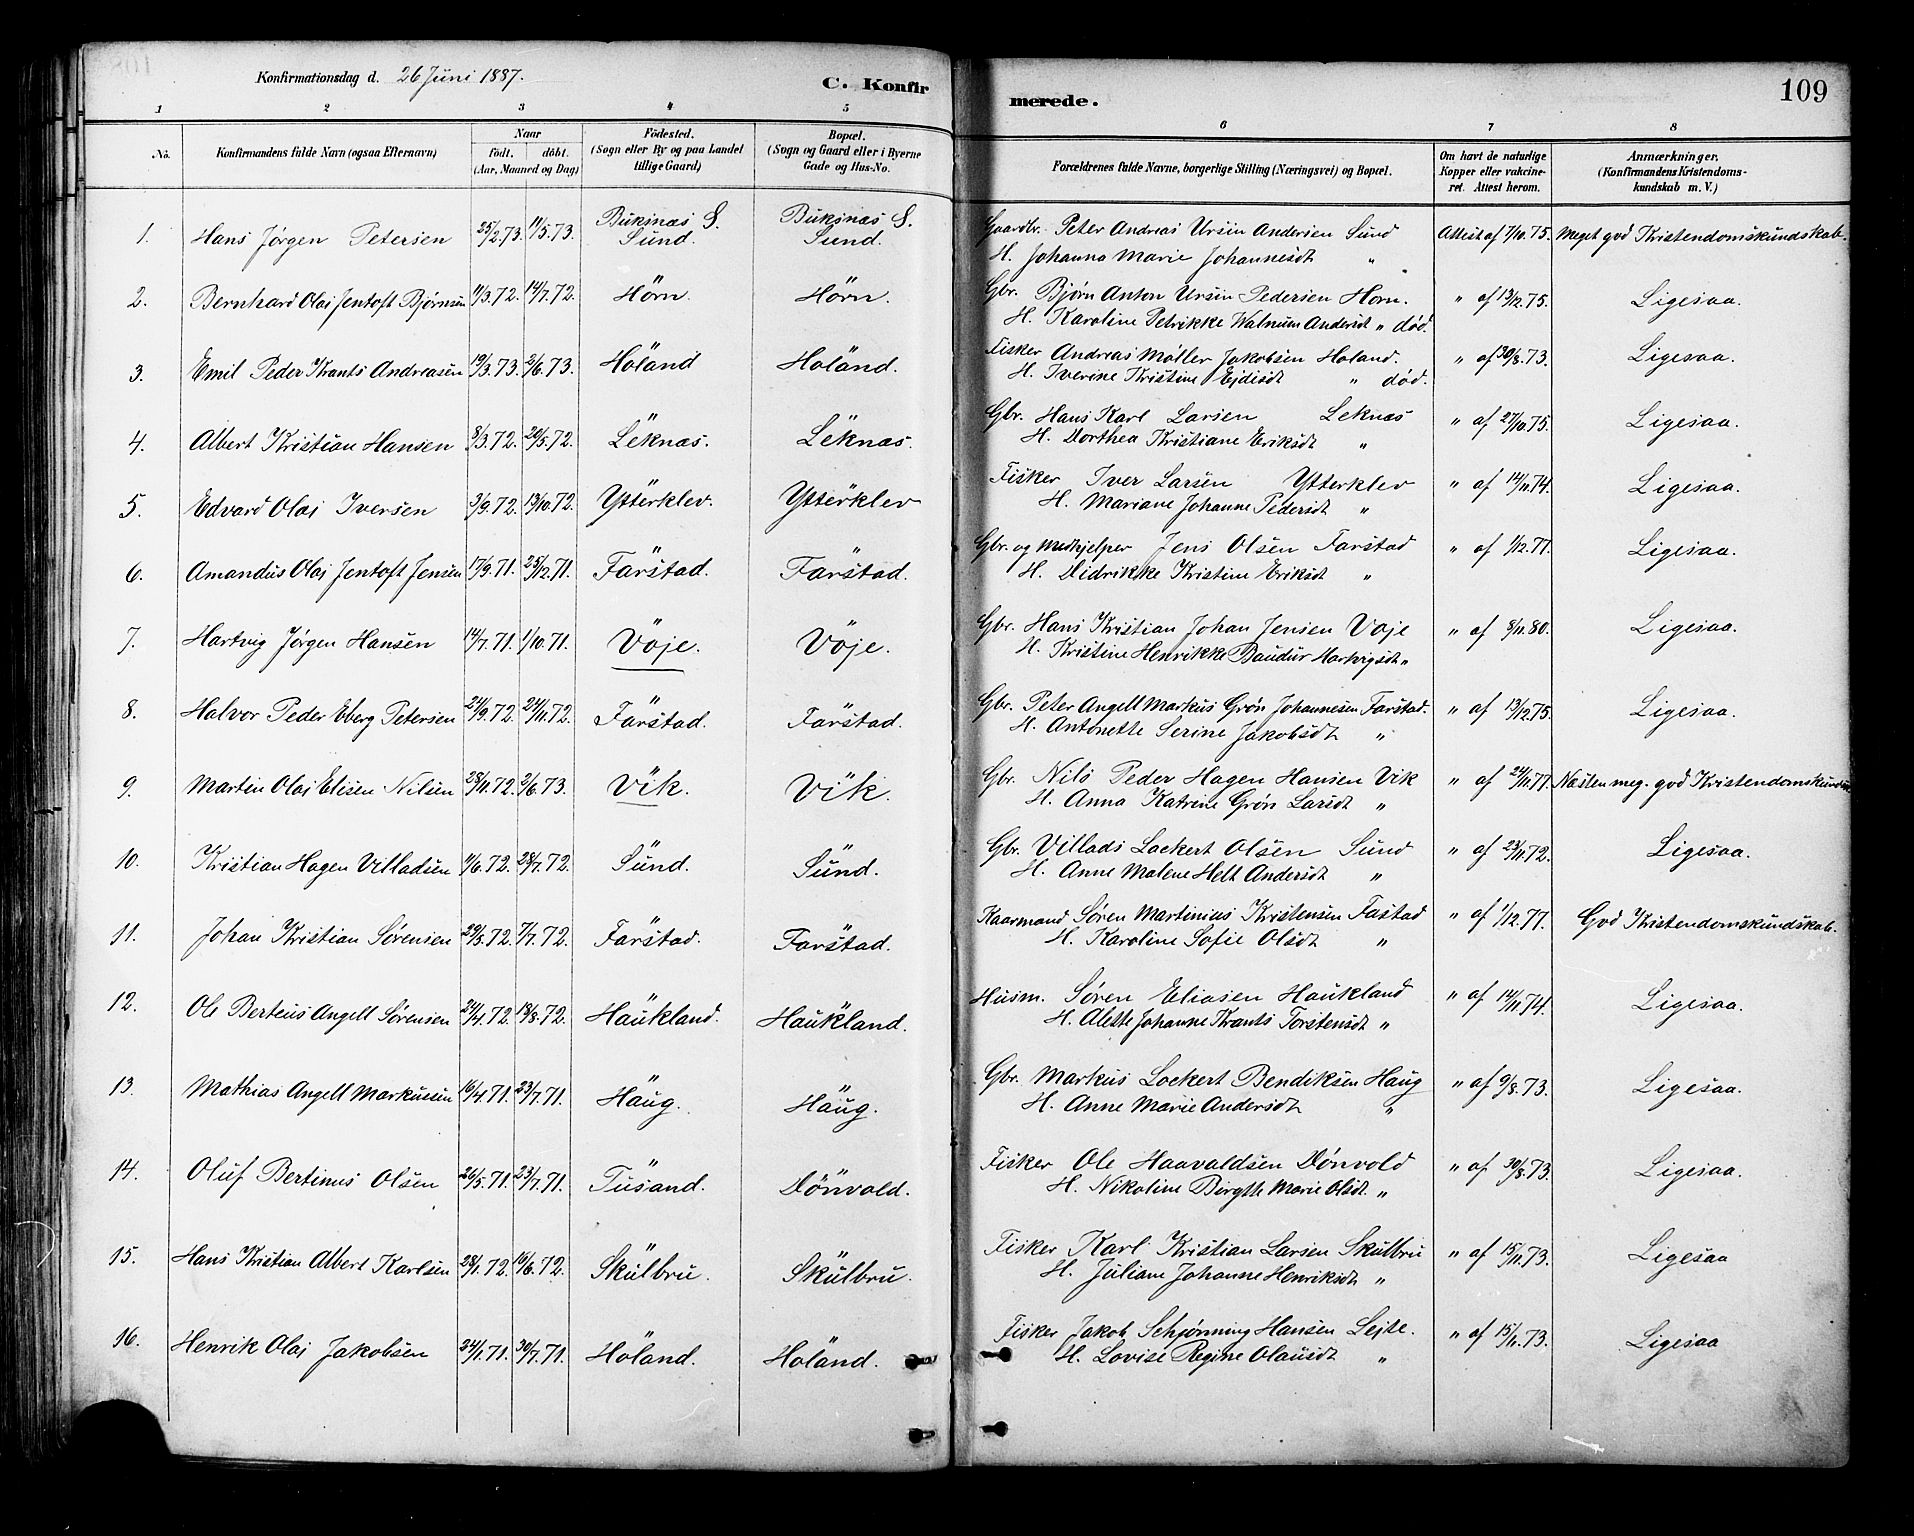 Konfirmationsdag d. 26 Juni 1887.
C. Konfirmerede.
109
1 2 3 4 5 6 7 8
No. Konfirmandens fulde Navn (ogsaa Efternavn) Naar födt. döbt. (Aar, Maaned og Dag) Födested. (Sogn eller By og paa Landet tillige Gaard) Bopæl. (Sogn og Gaard eller i Byerne Gade og Hus-No. Forældrenes fulde Navne, borgerlige Stilling (Næringsvei) og Bopæl. Om havt de naturlige Kopper eller vakcineret. Attest herom. Anmærkninger. (Konfirmandens Kristendomskundskab m. V.)
1. Hans Jørgen Petersen 25/2.73. 11/5.73. Buksnæs S. Sund. Buksnæs S. Sund. Gaardbr. Peter Andreas Ursin Andersen Sund Attest af 7/10.75. Meget god Kristendomskundskab.
H. Johanna Marie Johannesdt "
2. Bernhard Olai Jentoft Bjørnsen 11/3.72. 14/7.72. Horn. Horn. Gbr. Bjørn Anton Ursin Pedersen Horn. " af 13/12.75. Ligesaa.
H. Karoline Petrikke Walnum Andersdt " død.
3. Emil Peder Krants Andreasen 19/3.73. 2/6.73. Holand Holand. Fisker Andreas Møller Jakobsen Holand. " af 30/8.73. Ligesaa.
H. Iverine Kristine Ejdisdt " død.
4. Albert Kristian Hansen 8/3.72. 20/5.72. Leknæs. Leknæs. Gbr. Hans Karl Larsen Leknæs " af 27/10.75. Ligesaa.
H. Dorthea Kristiane Eriksdt "
5. Edvard Olai Iversen 3/9.72. 13/10.72. Ytterklev. Ytterklev Fisker Iver Larsen Ytterklev " af 14/11.74. Ligesaa.
H. Mariane Johanne Pedersdt "
6. Amandus Olai Jentoft Jensen 17/9.71. 25/12.71. Farstad. Farstad. Gbr. og Medhjelper Jens Olsen Farstad " af 1/12.77. Ligesaa.
H. Didrikke Kristine Eriksdt "
7. Hartvig Jørgen Hansen 14/7.71. 1/10.71. Voje. Voje. Gbr. Hans Kristian Johan Jensen Voje " af 8/11.80. Ligesaa.
H. Kristine Henrikke Baudur Hartvigsdt "
8. Halvor Peder Eberg Petersen 24/9.72. 24/11.72. Farstad. Farstad. Gbr. Peter Angell Markus Grøn Johannesen Farstad. " af 13/12.75. Ligesaa.
H. Antonette Serine Jakobsdt "
9. Martin Olai Elisen Nilsen 28/11.72. 2/6.73. Vik. Vik. Gbr. Nils Peder Hagen Hansen Vik " af 24/11.77. Næsten meg. god Kristendomskundsk.
H. Anna Katrine Grøn Larsdt "
10. Kristian Hagen Villadsen 11/6.72. 28/7.72. Sund. Sund. Gbr. Villads Lockert Olsen Sund " af 23/11.72. Ligesaa.
H. Anne Malene Helt Andersdt "
11. Johan Kristian Sørensen 29/5.72. 7/7.72. Farstad. Farstad. Kaarmand Søren Martinius Kristensen Fastad " af 1/12.77. God Kristendomskundskab.
H. Karoline Sofie Olsdt "
12. Ole Berteus Angell Sørensen 24/4.72. 18/8.72. Haukland. Haukland. Husm. Søren Eliasen Haukland " af 14/11.74. Ligesaa.
H. Alette Johanne Krants Torstensdt "
13. Mathias Angell Markussen 16/4.71. 23/7.71. Haug. Haug. Gbr. Markus Lockert Bendiksen Haug " af 9/8.73. Ligesaa.
H. Anne Marie Andersdt "
14. Oluf Bertinus Olsen 26/5.71. 23/7.71. Tusand. Dønvold. Fisker Ole Haavaldsen Dønvold " af 30/8.73. Ligesaa.
H. Nikoline Birgtte Marie Olsdt. "
15. Hans Kristian Albert Karlsen 28/1.72. 16/6.72. Skulbru. Skulbru. Fisker Karl Kristian Larsen Skulbru " af 15/11.73. Ligesaa
H. Juliane Johanne Henriksdt "
16. Henrik Olai Jakobsen 24/1.71. 30/7.71. Holand. Holand. Fisker Jakob Schjønning Hansen Lejte. " af 15/11.73. Ligesaa
H. Lovise Regine Olausdt "